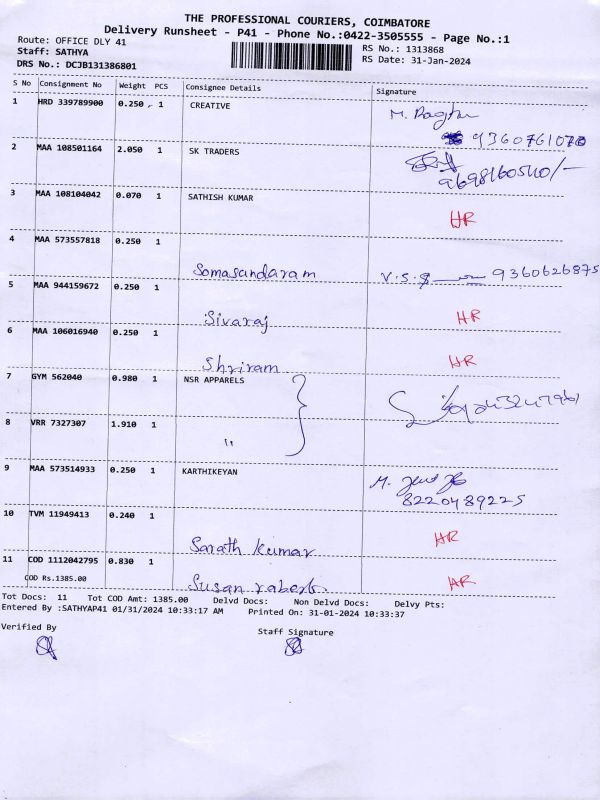 THE PROFESSIONAL COURIERS, COIMBATORE
Delivery Runsheet - P41 - Phone No.:0422-3505555 - Page No.:1
Route: OFFICE DLY 41
RS No.: 1313868
Staff: SATHYA
RS Date: 31-Jan-2024
DRS No.: DCJB131386801
S No Consignment No Weight PCS Consignee Details Signature
1 HRD 339789900 0.250 1 CREATIVE M.
9360761070
2 MAA 108501164 2.050 1 SK TRADERS
9698160540/-
3 MAA 108104042 0.070 1 SATHISH KUMAR HR
4 MAA 573557818 0.250 1
Somasundaram V.S. 9360626875
5 MAA 944159672 0.250 1
Sivaraj HR
6 MAA 106016940 0.250 1
Shriram HR
7 GYM 562040 0.980 1 NSR APPARELS
8 VRR 7327307 1.910 1 "
9 MAA 573514933 0.250 1 KARTHIKEYAN M.
8220489225
10 TVM 11949413 0.240 1
Sarath kumar HR
11 COD 1112042795 0.830 1
COD Rs.1385.00 Susan HR
Tot Docs: 11 Tot COD Amt: 1385.00 Delvd Docs: Non Delvd Docs: Delvy Pts:
Entered By :SATHYAP41 01/31/2024 10:33:17 AM Printed On: 31-01-2024 10:33:37
Verified By Staff Signature